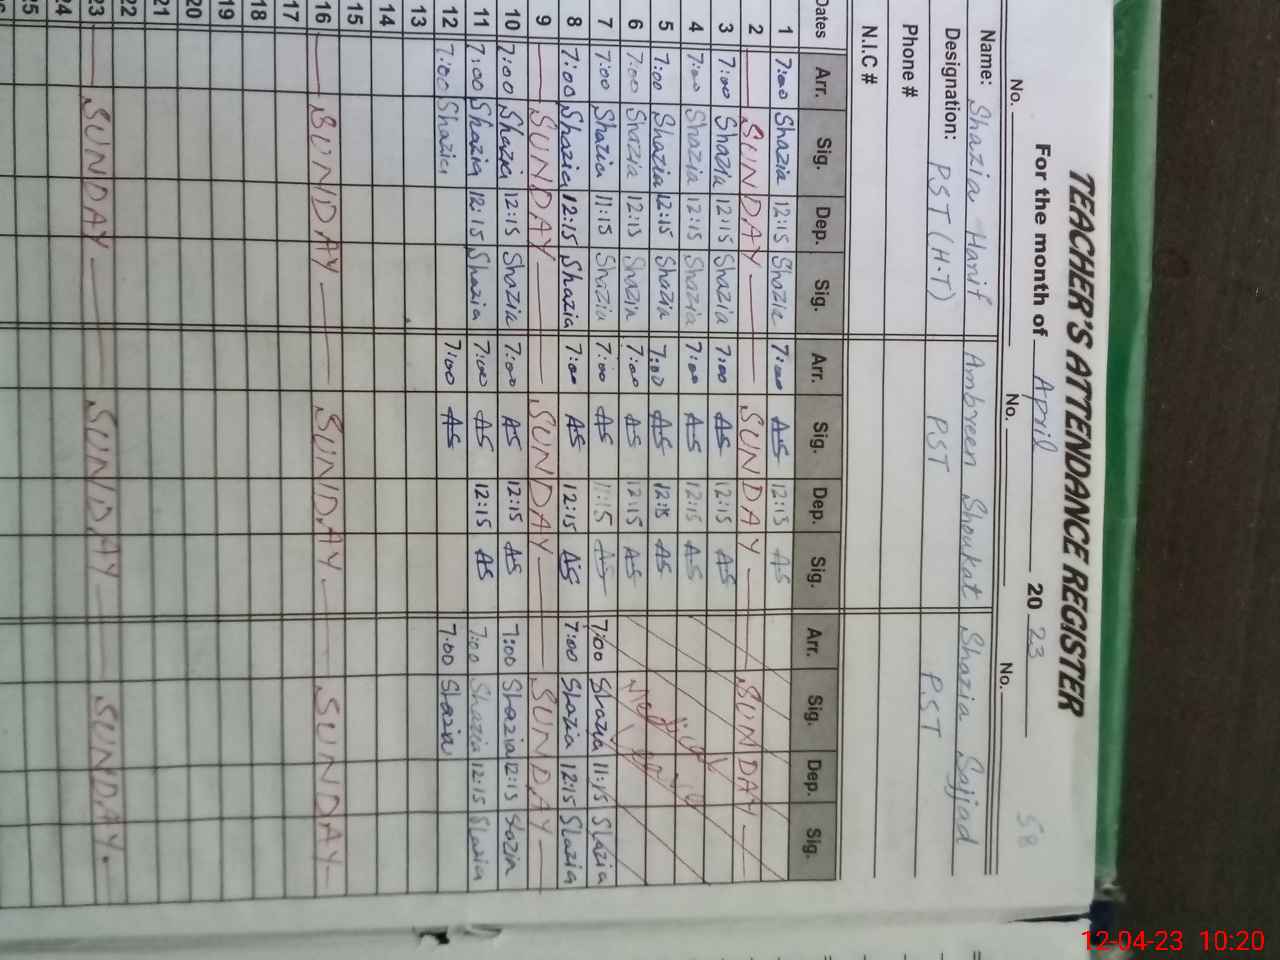 TEACHER'S ATTENDANCE REGISTER
58
For the month of April 2023
No. No. No.
Name: Shazia Hanif Ambreen Shoukat Shazia Sajjad
Designation: PST (H.T) PST PST
Phone #
N.I.C #
Dates Arr. Sig. Dep. Sig. Arr. Sig. Dep. Sig. Arr. Sig. Dep. Sig.
1 7:00 Shazia 12:15 Shazia 7:00 AS 12:15 AS
2 SUNDAY SUNDAY SUNDAY
3 7:00 Shazia 12:15 Shazia 7:00 AS 12:15 AS
4 7:00 Shazia 12:15 Shazia 7:00 AS 12:15 AS
5 7:00 Shazia 12:15 Shazia 7:00 AS 12:15 AS
6 7:00 Shazia 12:15 Shazia 7:00 AS 12:15 AS
7 7:00 Shazia 11:15 Shazia 7:00 AS 11:15 AS 7:00 Shazia 11:15 Shazia
8 7:00 Shazia 12:15 Shazia 7:00 AS 12:15 AS 7:00 Shazia 12:15 Shazia
9 SUNDAY SUNDAY SUNDAY
10 7:00 Shazia 12:15 Shazia 7:00 AS 12:15 AS 7:00 Shazia 12:15 Shazia
11 7:00 Shazia 12:15 Shazia 7:00 AS 12:15 AS 7:00 Shazia 12:15 Shazia
12 7:00 Shazia 7:00 AS 7:00 Shazia
13
14
15
16 SUNDAY SUNDAY SUNDAY
17
18
19
20
21
22
23 SUNDAY SUNDAY SUNDAY
24
25
12-04-23 10:20